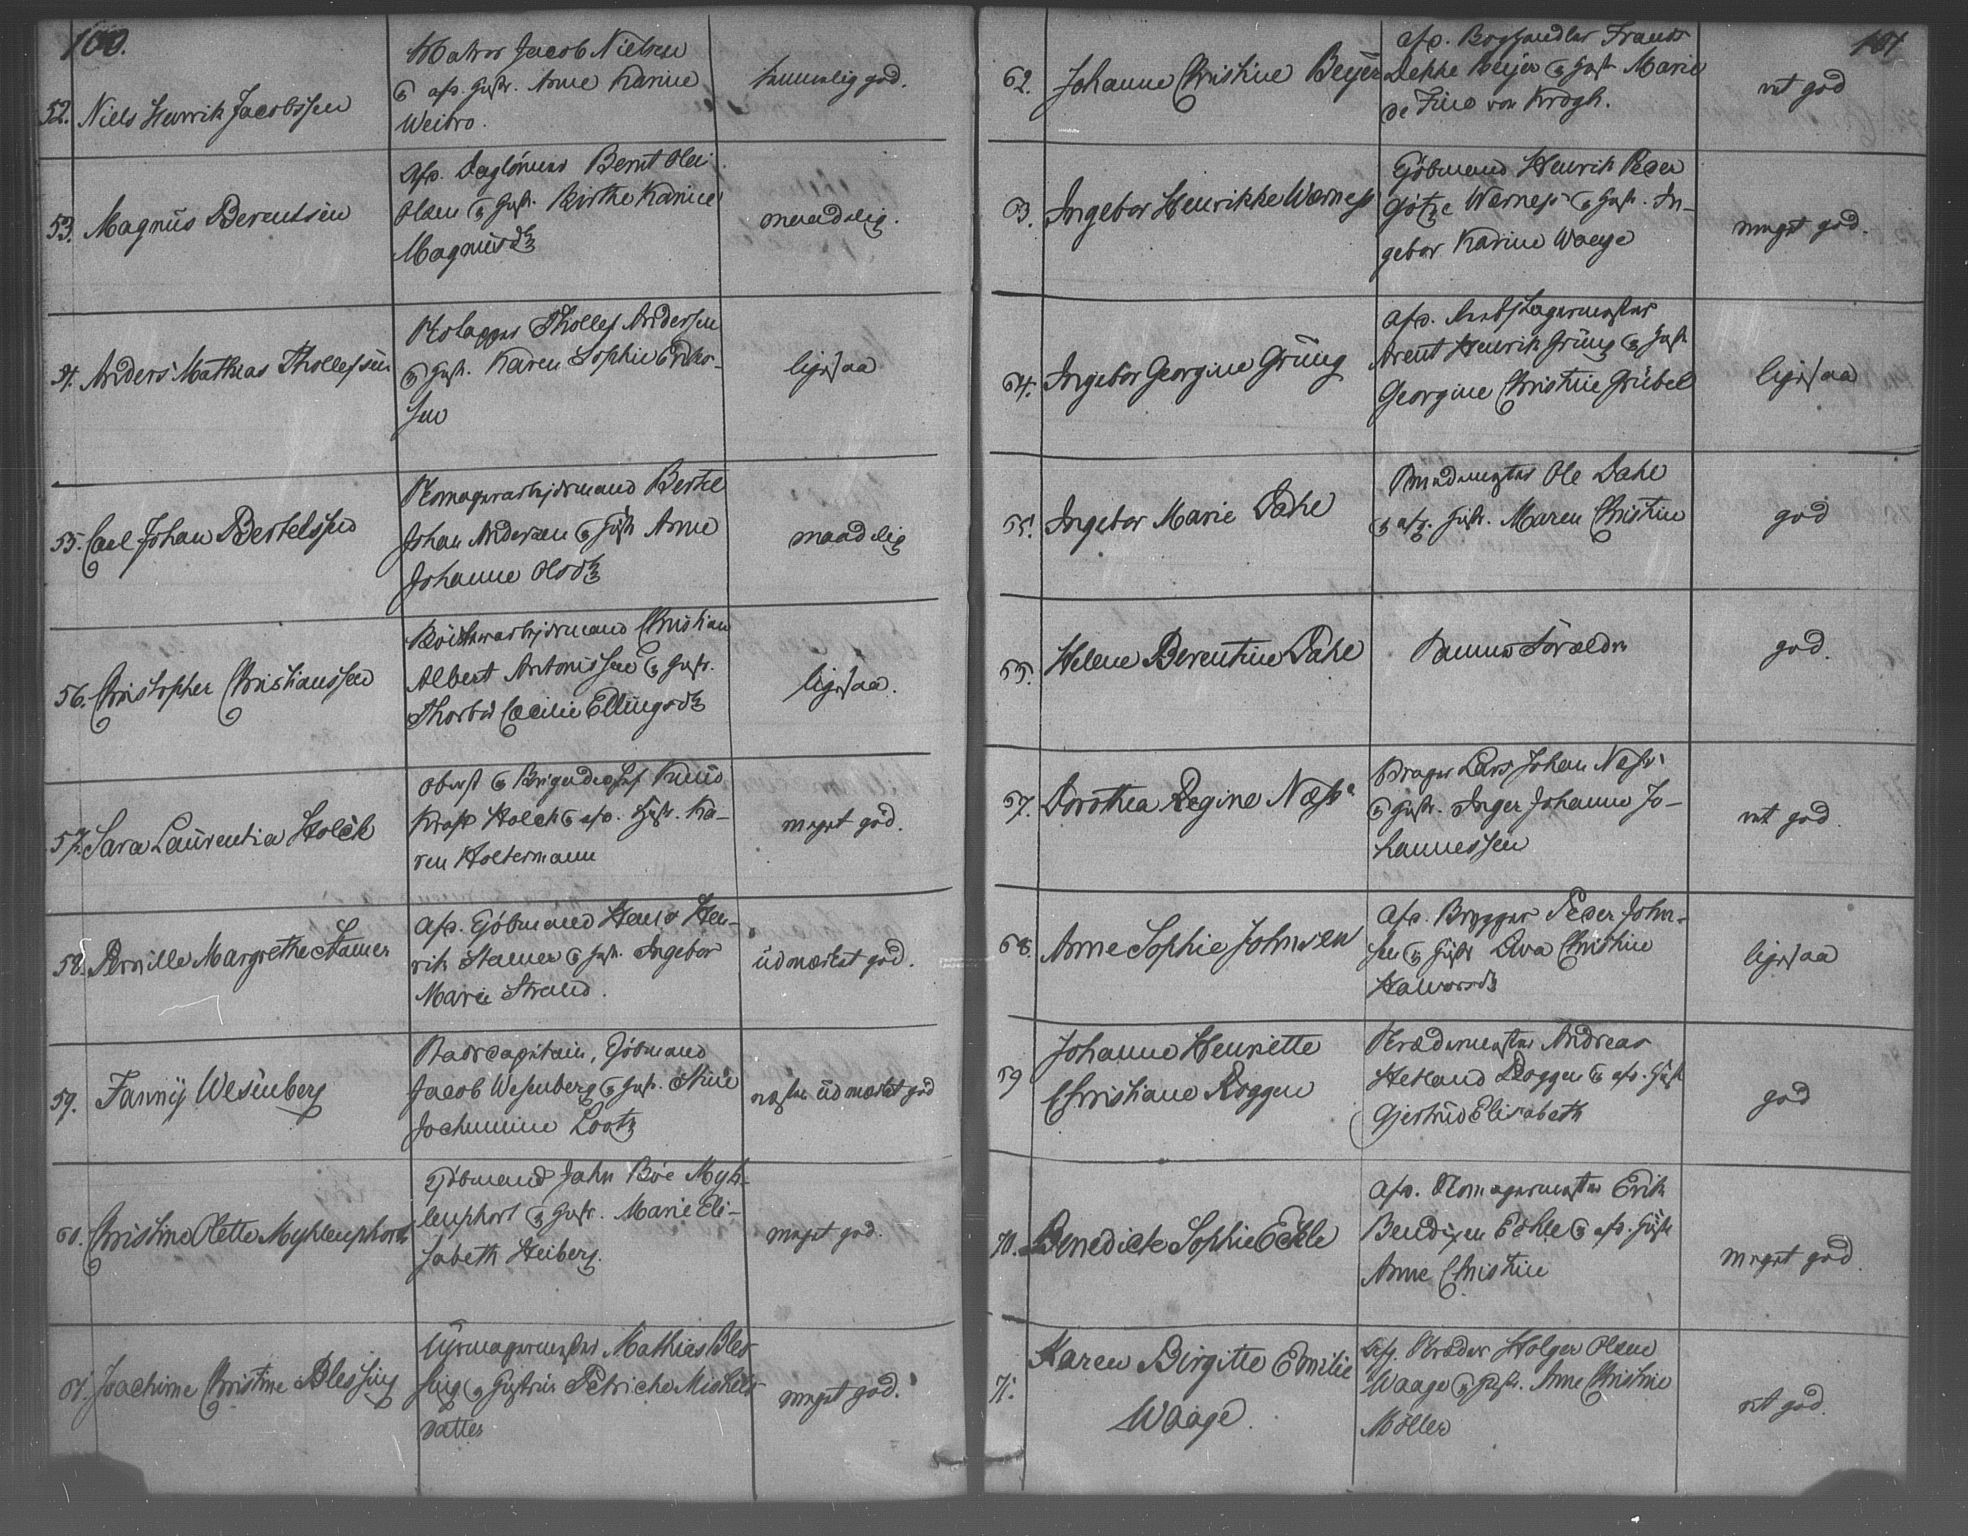 100.
52. Niels Henrik Jacobssen
Matros Jacob Nielsen
& afd. Hustr. Anne Karine
Weibro.
temmelig god.
53. Magnus Berentsen
Afd. Daglönner Bernt Olai
Olsen & Hustr. Birthe Karine
Magnusdtr
maadelig.
54. Anders Mathias Thollefsen
Thollef Andersen
& Hustr. Karen Sophie Eriks-
sen
ligesaa
55. Carl Johan Bertelssen
Skomagerarbejdsmand Bertel
Johan Andersen & Hustr Anne
Johanne Olsdtr
maadelig
56. Christopher Christianssen
Christian
Albert Antonissen & Hustr.
Thorbr Cæcilie Ellingsdtr
ligesaa.
57. Sara Laurentia Holck
Oberst & Brigadechef Knud
Kraft Holck & afd. Hustr. Ka-
ren Holtermann
meget god.
58. Pernille Margrethe Stamer
Afd. Kjöbmand Hans Hen-
rik Stamer & Hustr. Ingebor
Marie Strand.
udmærket god.
59. Fanny Wesenberg
Jacob Wesenberg & Hustr. Stine
Jochumine Lootz
næsten udmærket god
60. Christine Olette Myhlenphort
Kjöbmand Jahn Böe Myh-
lenphort & Hustr. Marie Eli-
sabeth Heiberg.
meget god.
61. Joachime Christine Blessing
Uhrmagermester Mathias Bles-
sing & Hustrue Petriche Michels
datter
meget god.
101
62. Johanne Christine Beyer
afd. Boghandler Frants
Dekke Beijer & Hustr Marie
de Fine von Krogh.
ret god
63. Ingebor Henrikke Werness
Kjöbmand Henrik Peder
Götze Werness & Hustr. In-
gebor Karine Waage
meget god.
64. Ingebor Georgine Grüng
afd.
Arent Henrik Grüng & Hustr
Georgine Christine Grübel
ligesaa
65. Ingebor Marie Dahl
Ole Dahl
& afd. Hustr. Maren Christine
god
65. Helene Berentine Dahl
Samme Forældre
god.
67. Dorothea Regine Næss
Drager Lars Johan Næss
& Hustr. Inger Johanne Jo-
hannessen
ret god
68. Anne Sophie Johnsen
Afd. Brygger Peder John-
sen & Hustr Eva Christine
Halvorsdtr
ligesaa
59 Johanne Henriette
Christiane Roggen
Skrædermester Andreas
Hetland Roggen & afd. Hustr
Gjertrud Elisabeth
god
70. Benedicte Sophie Eckle
Afd. Skomagermester Erik
Bendixen Eckle & afd. Hustr
Anne Christine
meget god.
71. Karen Birgitte Emilie
Waage.
Afd. Skræder Holger Olsen
Waage & Hustr. Anne Christine
Möller
ret god.